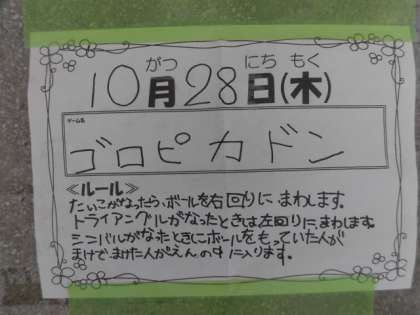 がつ にち もく
10月28日(木)
ゲーム名
ゴロピカドン
≪ルール≫
たいこがなったら、ボールを右回りにまわします。
トライアングルがなったときは左回りに、まわします。
シンバルがなったときにボールをもっていた人が
まけで、まけた人がえんの中に入ります。